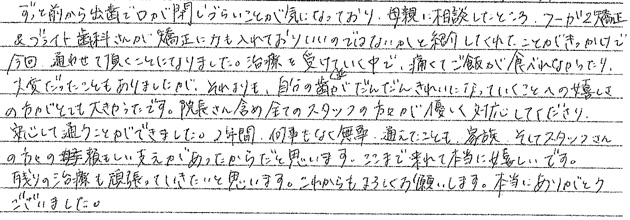 ずっと前から出歯で口が閉じづらいことが気になっており、母親に相談したところ、フーガ2矯正
&ブライト歯科さんが矯正に力も入れておりいいのではないかと紹介してくれたことがきっかけで
今回、通わせて頂くことになりました。治療を受けていく中で、痛くてご飯が食べれなかったり、
大変だったこともありましたが、それよりも、自分の歯がだんだんきれいになっていくことへの嬉しさ
の方がとても大きかったです。院長さん含め全てのスタッフの方々が優しく対応してくださり、
安心して通うことができました。2年間、何事もなく無事、通えたことも、家族、そしてスタッフさん
の方々の頼もしい支えがあったからだと思います。ここまで来れて本当に嬉しいです。
残りの治療も頑張っていきたいと思います。これからもよろしくお願いします。本当にありがとう
ございました。